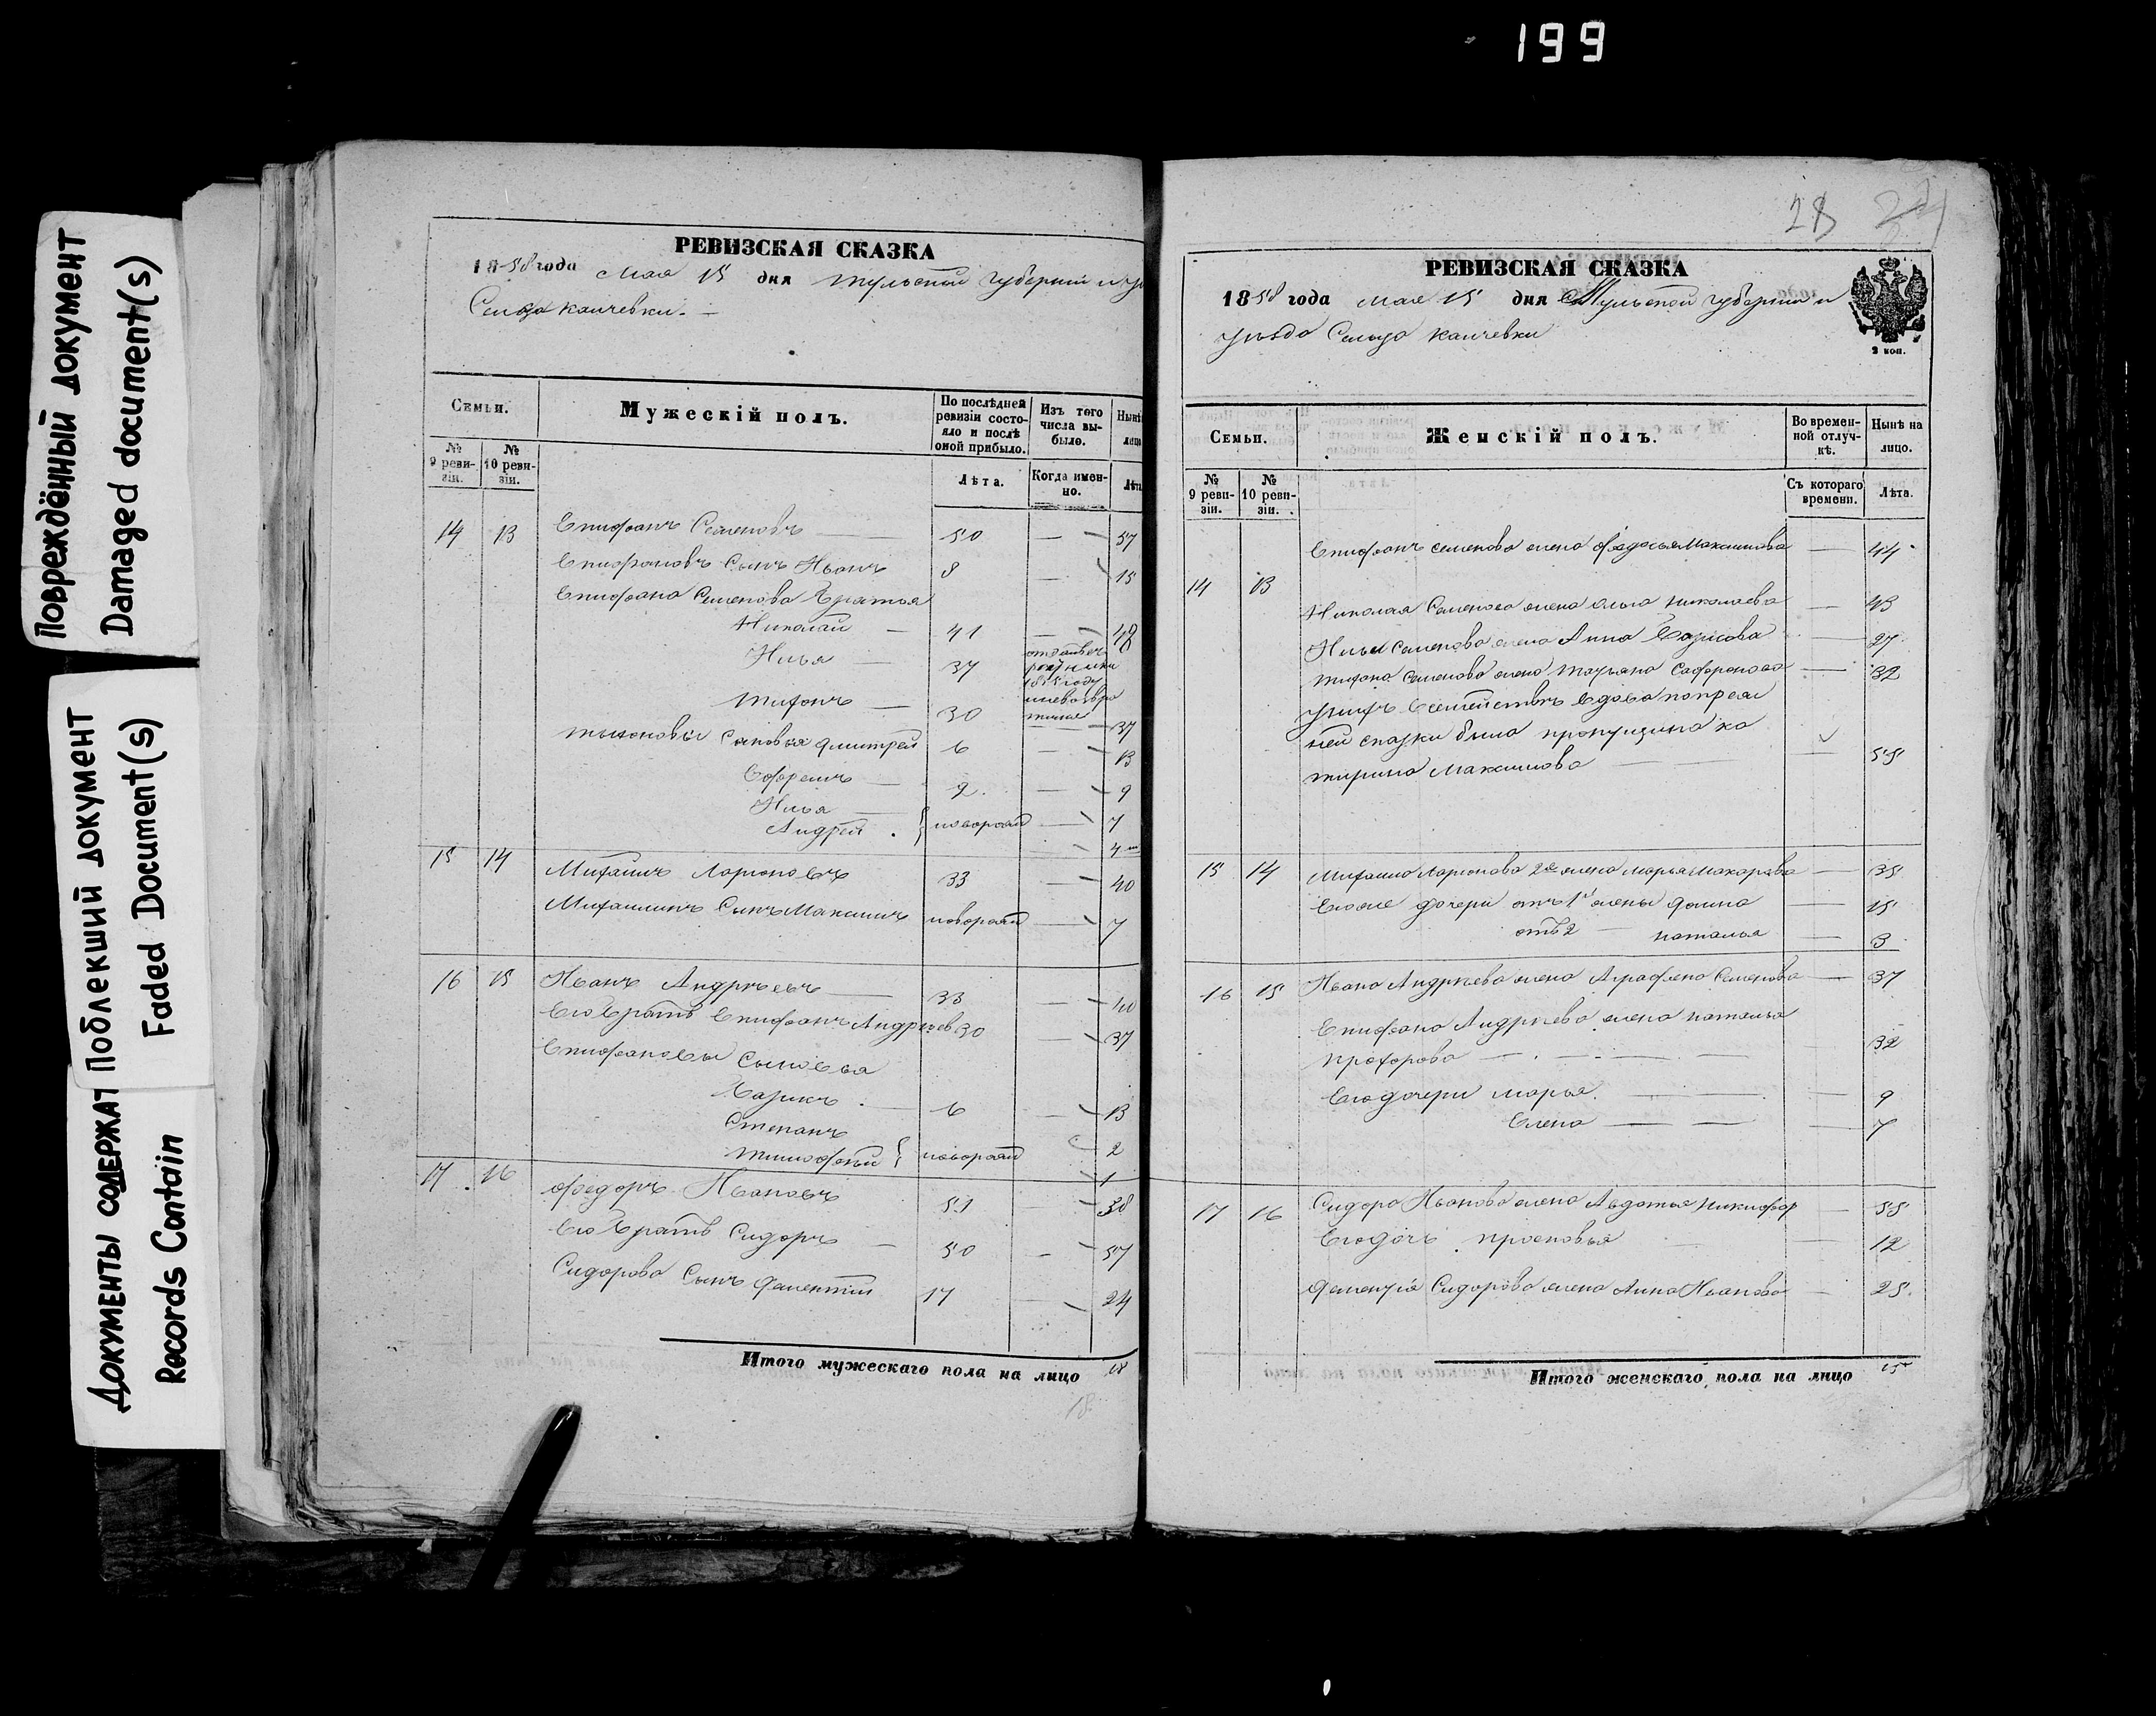 199
Повреждённый документ
Damaged document(s)
Поблекший документ
Faded Document(s)
Документы содержат
Records Contain
РЕВИЗСКАЯ СКАЗКА
1858 года Мая 15 дня Тульской Губернии и
Сельца
Семьи.
Мужескій полъ.
По послѣдней ревизіи состояло и послѣ оной прибыло.
Изъ того числа выбыло.
Нынѣ
лицо
№ 9 ревизіи.
№ 10 ревизіи.
Лѣта.
Когда именно.
Лѣта
14 13 Епифанъ Семеновъ 50 — — 57
Епифановъ Сынъ Иванъ 8 — 15
Епифана Семенова Братья
Николай — 41 — 48
Илья — 37 1855 году
Тихонъ — 30 — 37
Тихоновы Сыновья Дмитрей 6 — 13
Ефремъ — 2. — 9
Илья — 7
Андрей новорожд — 4
15 14 Михаилъ Ларионовъ 33 — 40
Михаилинъ Сынъ Максимъ новорожд — 7
16 15 Иванъ Андреевъ — 33 — 40
Его братъ Епифанъ Андреев 30 — 37
Епифановы Сыновья
6 — 13
Степанъ 2
Тимофей новорожд 1
17 16 Федоръ Ивановъ 51 — 58
Его братъ Сидоръ — 50 — 57
Сидорова Сынъ 17 — 24
Итого мужескаго пола на лицо 18
18
28
РЕВИЗСКАЯ СКАЗКА
1858 года мая 15 дня Тульской Губернии и
уезда Сельца
2 коп.
Семьи.
Женскій полъ.
Во временной отлучкѣ.
Нынѣ на лицо.
№ 9 ревизіи.
№ 10 ревизіи.
Съ котораго времени.
Лѣта.
Епифанъ семенова жена Федосья Максимова — 44
14 13
Николая Семенова жена Ольга Николаева — 43
Ильи Семенова жена Анна Борисова — 27
Тихона Семенова жена Татьяна Сафронова — 32
Семействъ вдова
ней сказки была пропущина ка
тирина Максимова — — 55
15 14 Михаила Ларионова 2я жена Марья Макарова — 35
Его же дочери отъ 1й жены Домна — 15
отъ 2 — Наталья — 3
16 15 Ивана Андреева жена Аграфена Семенова — 37
Епифана Андреева жена Наталья
Прохорова — — — 32
Его дочери Марья — — 9
Елена — — 7
17 16 Сидора Иванова жена Авдотья Никифор — 55
Его дочь Просковья — 12
Сидорова жена Анна Иванова — 25.
Итого женскаго пола на лицо 15